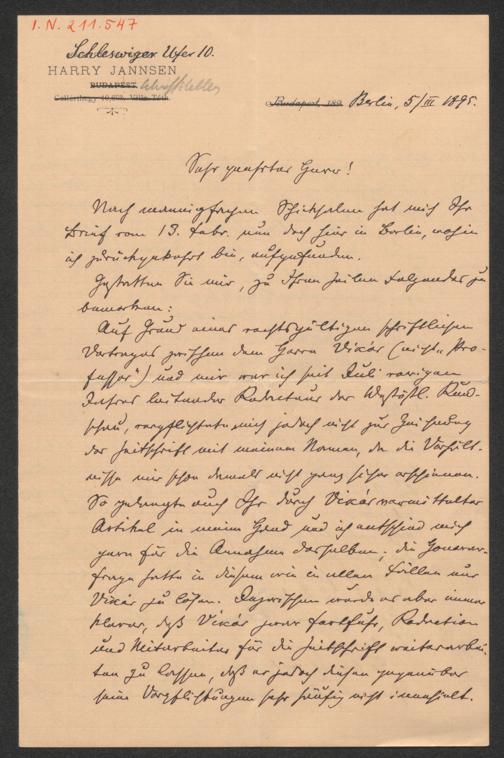 I.N. 211.547
Schleswiger Ufer 10.
HARRY JANNSEN
BUDAPEST
Budapest, 189 Berlin, 5/III 1895.
Sehr geehrter Herr!
Nach mannigfachen Schicksalen hat mich Ihr
Brief vom 13. Febr. nun doch hier in Berlin, wohin
ich zurückgekehrt bin, aufgefunden.
Gestatten Sie mir, zu Ihren Zeilen Folgendes zu
bemerken:
Auf Grund eines rechtsgültigen schriftlichen
Vertrages zwischen dem Herrn Vikár (nicht „Pro-
fessor") und mir war ich seit Juli vorigen
Jahres leitender Redacteur der Westöstl. Rund-
schau, verpflichtete mich jedoch nicht zur Zeichnung
der Zeitschrift mit meinem Namen, da die Verhält-
nisse mir schon damals nicht ganz sicher erschienen.
So gelangte auch Ihr durch Vikár vermittelter
Artikel in meine Hand und ich entschied mich
gern für die Annahme desselben; die Honorar-
frage hatte in diesem wie in allen Fällen nur
Vikár zu lösen. Inzwischen wurde es aber immer
klarer, daß Vikár zwar fortfuhr, Redaction
und Mitarbeiter für die Zeitschrift weiterarbei-
ten zu lassen, daß er jedoch diesen gegenüber
seine Verpflichtungen sehr häufig nicht innehielt.